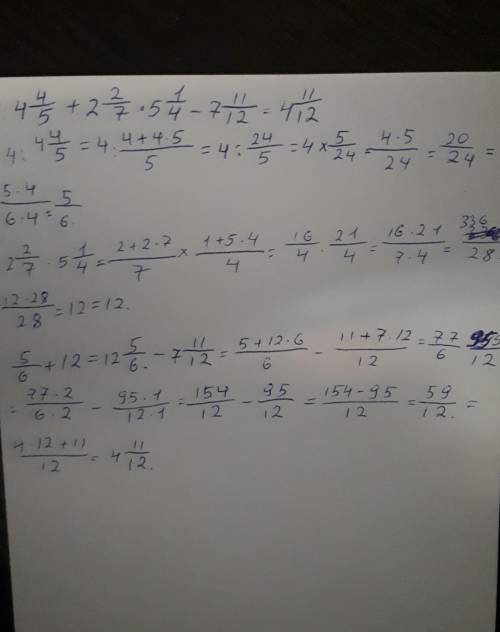 4 4/5 + 2 2/7 · 5 1/4 - 7 11/12 = 4 11/12
4 : 4 4/5 = 4 : (4+4·5)/5 = 4 : 24/5 = 4 × 5/24 = (4·5)/24 = 20/24 =
(5·4)/(6·4) = 5/6.
2 2/7 · 5 1/4 = (2+2·7)/7 × (1+5·4)/4 = 16/4 · 21/4 = (16·21)/(7·4) = 336/28
(12·28)/28 = 12 = 12.
5/6 + 12 = 12 5/6. - 7 11/12 = (5+12·6)/6 - (11+7·12)/12 = 77/6 95/12
= (77·2)/(6·2) - (95·1)/(12·1) = 154/12 - 95/12 = (154-95)/12 = 59/12. =
(4·12+11)/12 = 4 11/12.